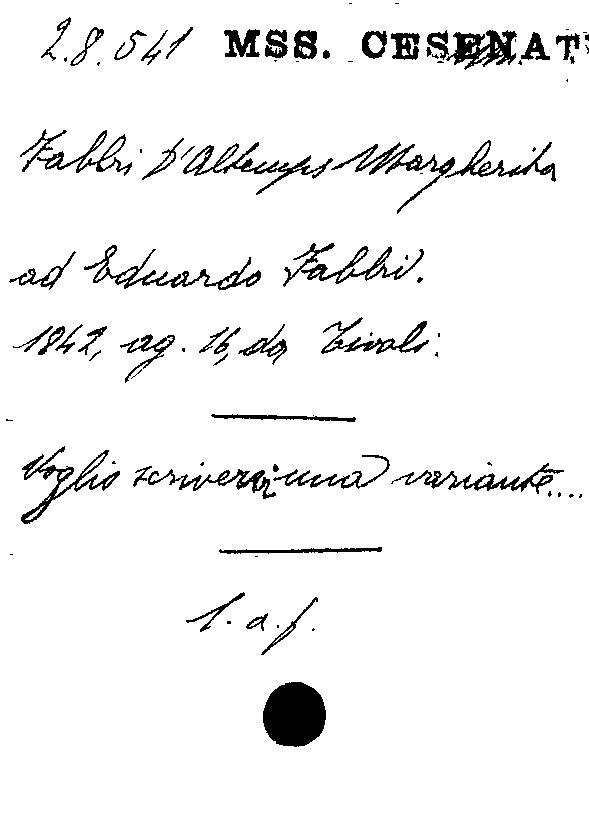 2.8.541 MSS. CESENAT
Fabbri D'Altemps Margherita
ad Eduardo Fabbri.
1842, ag. 16, da Tivoli.
Voglio scrivervi una variante....
l. a. f.